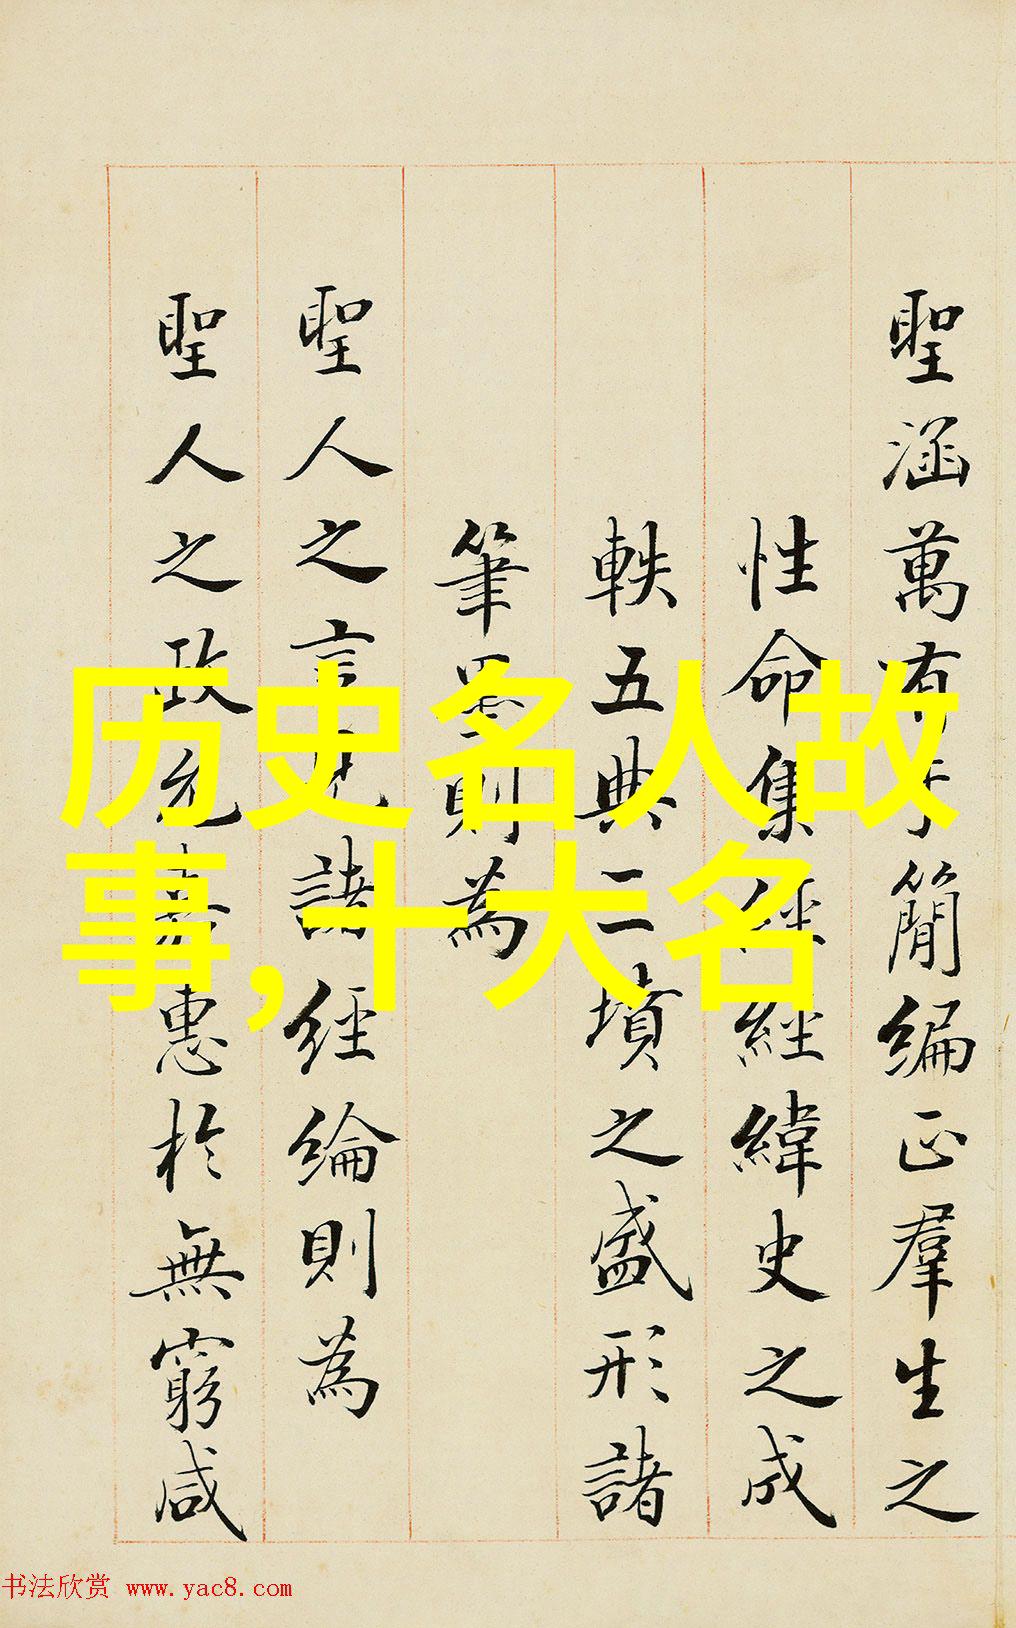 聖涵萬有於簡編正羣生之
性命集經經緯史之成
軼五典三墳之盛形諸
筆墨則為
聖人之言見諸經綸則為
聖人之政允惠於無窮咸
历史名人故
事,十大名
书法欣赏 www.yac8.com